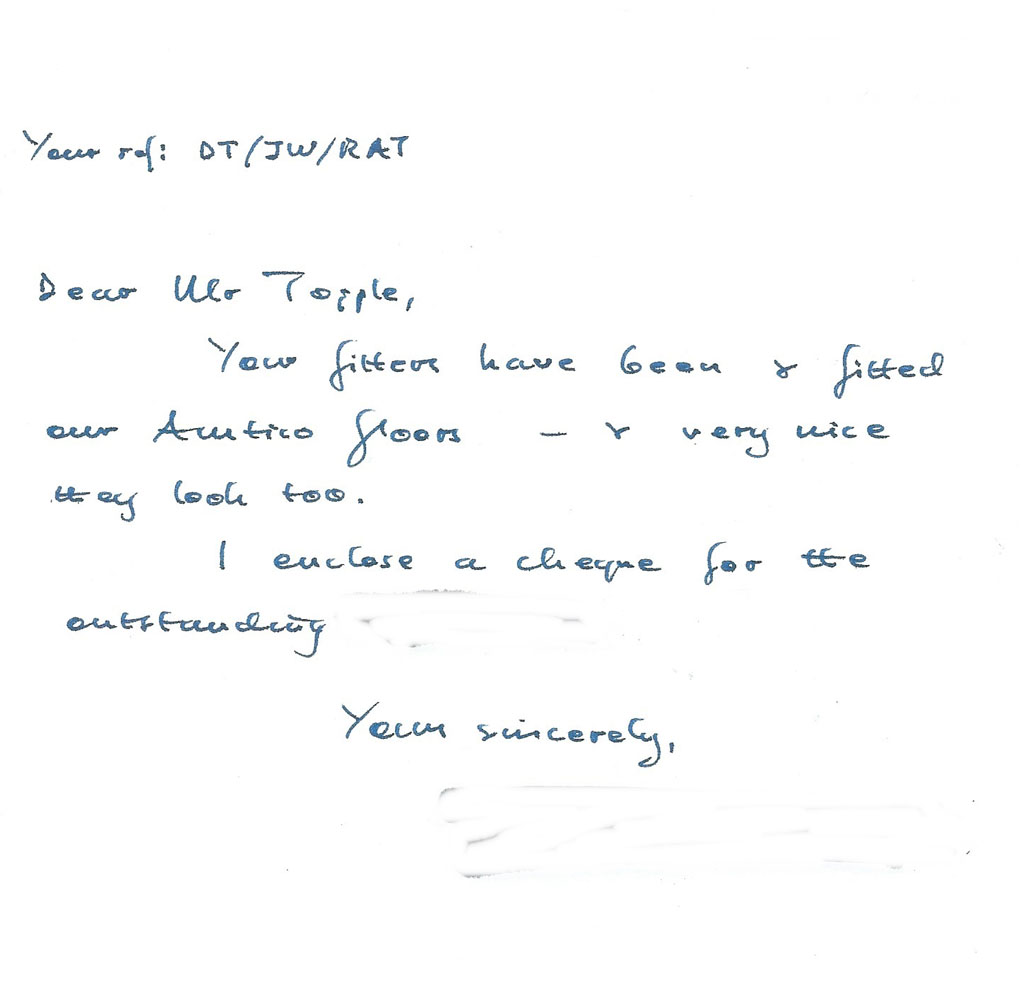 Your ref: DT/JW/RAT
Dear Mr Topple,
Your fitters have been & fitted
our Amtico floors – & very nice
they look too.
I enclose a cheque for the
outstanding
Yours sincerely,